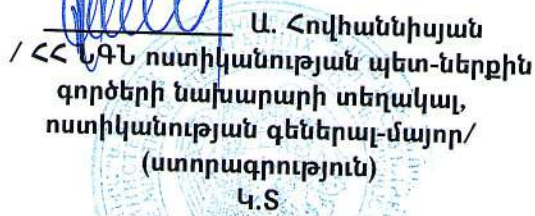 Ա. Հովհաննիսյան
/ ՀՀ ՆԳՆ ոստիկանության պետ-ներքին
գործերի նախարարի տեղակալ,
ոստիկանության գեներալ-մայոր/
(ստորագրություն)
Կ.Տ